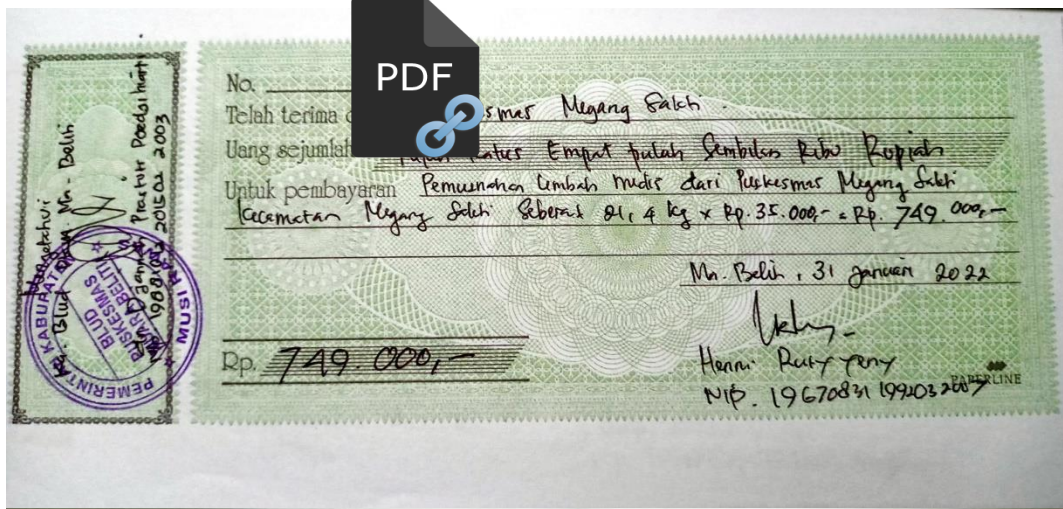 PDF
No.
Telah terima
smas Megang Sakti.
Uang sejumlah Ratus Empat puluh Sembilan Ribu Rupiah
Untuk pembayaran Pemusnahan Limbah medis dari Puskesmas Megang Sakti
Kecamatan Megang Sakti Seberat 21,4 kg x Rp. 35.000,- = Rp. 749.000,-
Mn. Beliti, 31 Januari 2022
Rp. 749.000,-
Henni
NIP. 19670831 199203 2007
PAPERLINE
Mengetahui
Blud Mn - Beliti
PEMERINTAH KABUPATEN MUSI RAWAS
BLUD
PUSKESMAS
MUARA BELITI